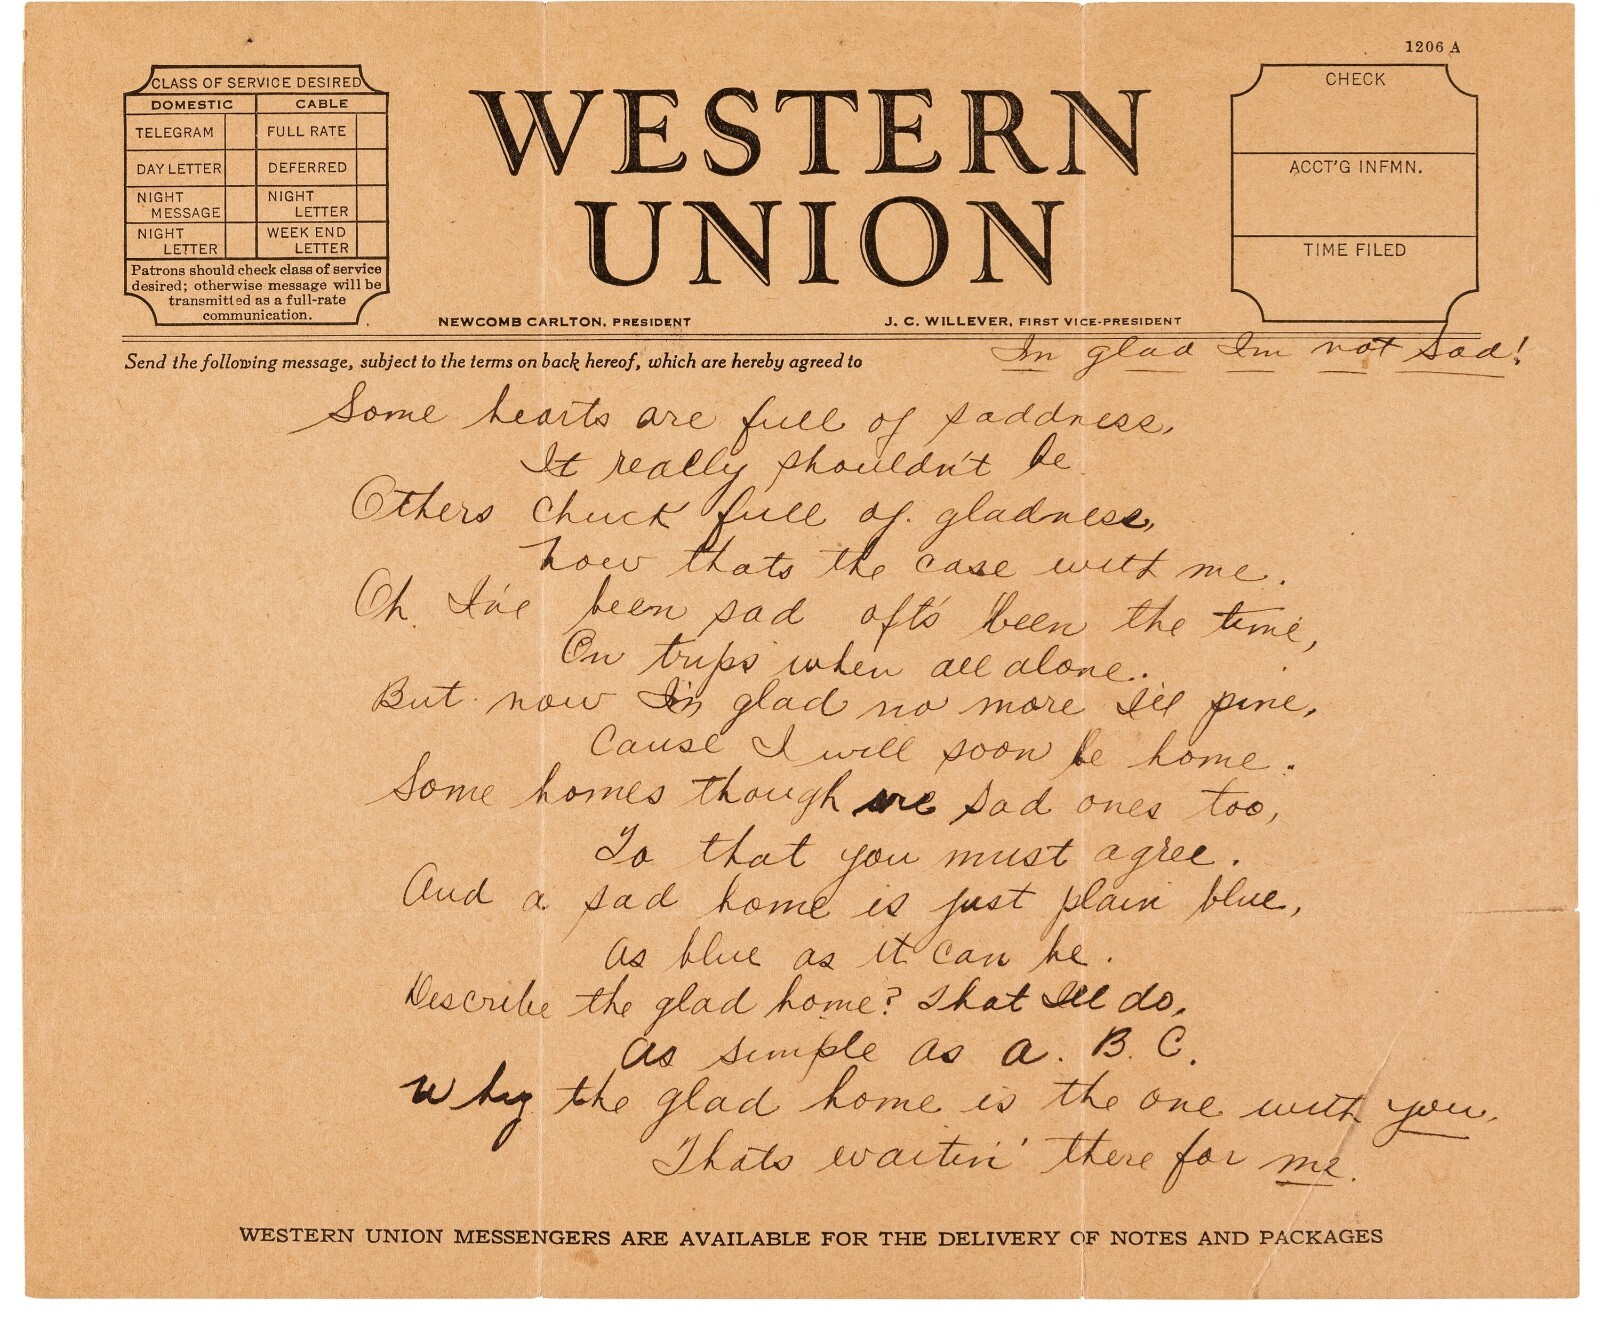 1206 A
CLASS OF SERVICE DESIRED
DOMESTIC CABLE
TELEGRAM FULL RATE
DAY LETTER DEFERRED
NIGHT MESSAGE NIGHT LETTER
NIGHT LETTER WEEK END LETTER
Patrons should check class of service
desired; otherwise message will be
transmitted as a full-rate
communication.
WESTERN
UNION
NEWCOMB CARLTON, PRESIDENT J. C. WILLEVER, FIRST VICE-PRESIDENT
CHECK
ACCT'G INFMN.
TIME FILED
Send the following message, subject to the terms on back hereof, which are hereby agreed to
Im glad Im not Sad!
Some hearts are full of saddness,
It really shouldn't be.
Others chuck full of gladness,
now thats the case with me.
Oh I've been sad oft's been the time,
On trips when all alone.
But now I'm glad no more I'll pine,
Cause I will soon be home.
Some homes though are sad ones too,
To that you must agree.
And a sad home is just plain blue,
as blue as it can be.
Describe the glad home? That I'll do,
as simple as a. B. C.
Why the glad home is the one with you,
Thats waitin' there for me.
WESTERN UNION MESSENGERS ARE AVAILABLE FOR THE DELIVERY OF NOTES AND PACKAGES